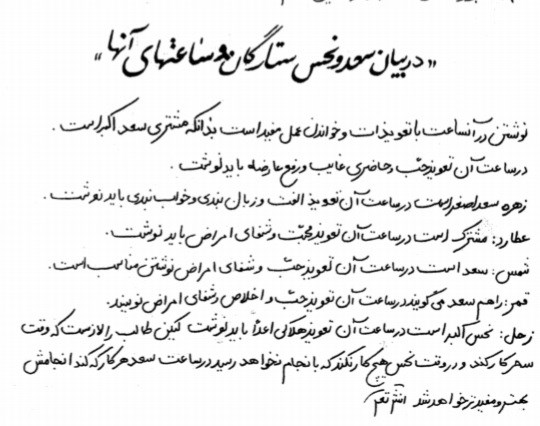 «در بیان سعد و نحس ستارگان و ساعتهای آنها»
نوشتن در آنساعت با تعویذات و خواندن عمل مفید است بدانکه مشتری سعد اکبر است.
در ساعت آن تعویذ حب و حاضری غایب و رفع عارضه باید نوشت.
زهره سعد اصغر است در ساعت آن تعویذ الفت و زبان بندی و خواب بندی باید نوشت.
عطارد: مشترک است در ساعت آن تعویذ محبت و شفای امراض باید نوشت.
شمس: سعد است در ساعت آن تعویذ حب و شفای امراض نوشتن مناسب است.
قمر: را هم سعد می گویند در ساعت آن تعویذ حب و اخلاص و شفای امراض نویسند.
زحل: نحس اکبر است در ساعت آن تعویذ هلاکی اعدا باید نوشت لیکن طالب را لازمست که وقت
سعد کار کند و در وقت نحس هیچ کار نکند که با نجام نخواهد رسید در ساعت سعد هر کار که کند انجامش
بهتر و مفیدتر خواهد شد